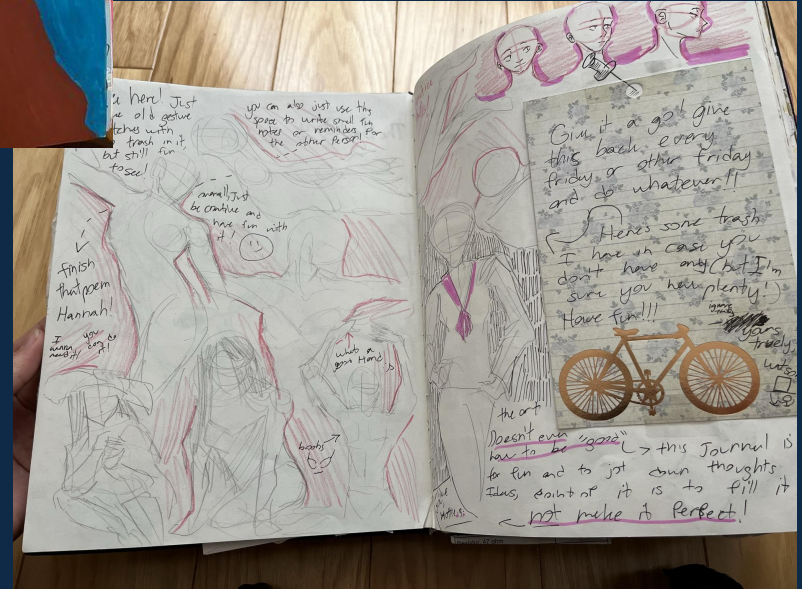 here! Just
old gesture
tches with
trash in it,
but still fun
to see!
you can also just use the
space to write small fun
notes or reminders for
the other person!
overall, just
be creative and
have fun with
it!
finish
that poem
Hannah!
I
wanna
read it!
you
can do
it!
what a
good Hand
boobs
Give it a go! give
this back every
friday or other friday
and do whatever!!
Here's some trash
I have in case you
don't have any (but I'm
sure you have plenty!)
Have fun!!!
ignore
this
yours
truely,
the art
Doesn't even
have to be "good"
this Journal is
for fun and to jot down thoughts
Ideas, point of it is to fill it
not make it perfect!